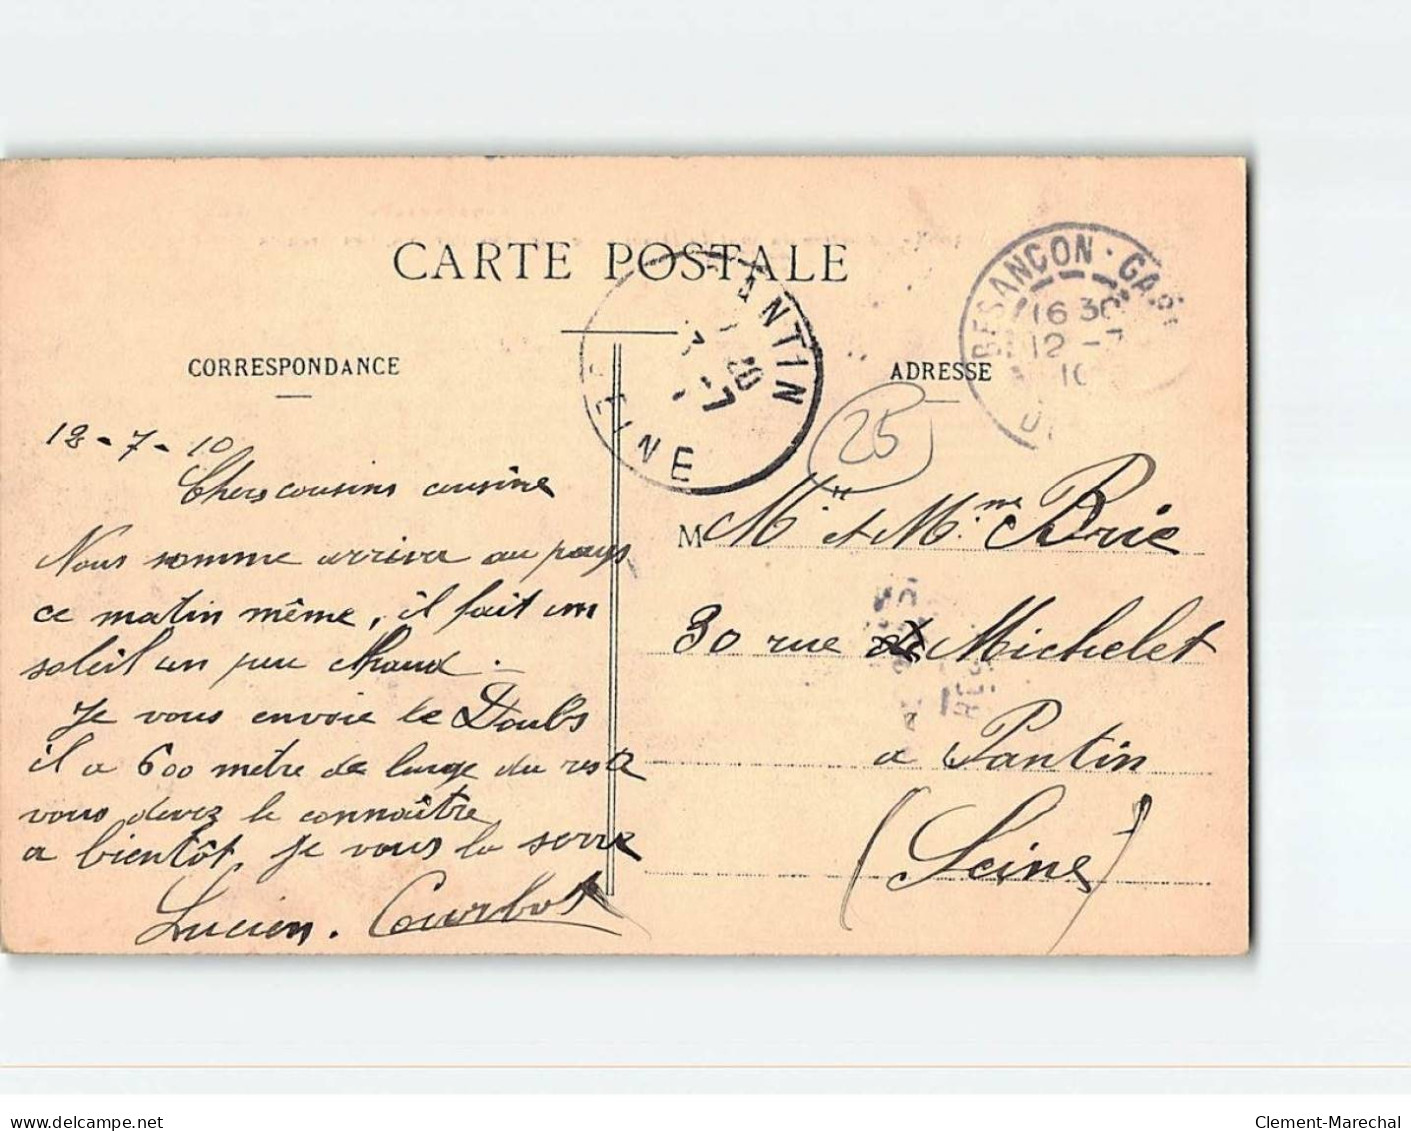 CARTE POSTALE
CORRESPONDANCE
ADRESSE
PANTIN
SEINE
BESANÇON - GARE
16 30
12 - 7
10
25
12 - 7 - 10
Chers cousins cousine
Nous somme arriver au pays
ce matin même, il fait un
soleil un peu chaud.
Je vous envoie le Doubs
il a 600 metre de large du reste
vous devez le connaître
a bientôt, je vous la serre
Lucien. Courbot
M Mr et Mme Brie
30 rue Michelet
a Pantin
(Seine)
delcampe.net
Clement-Marechal